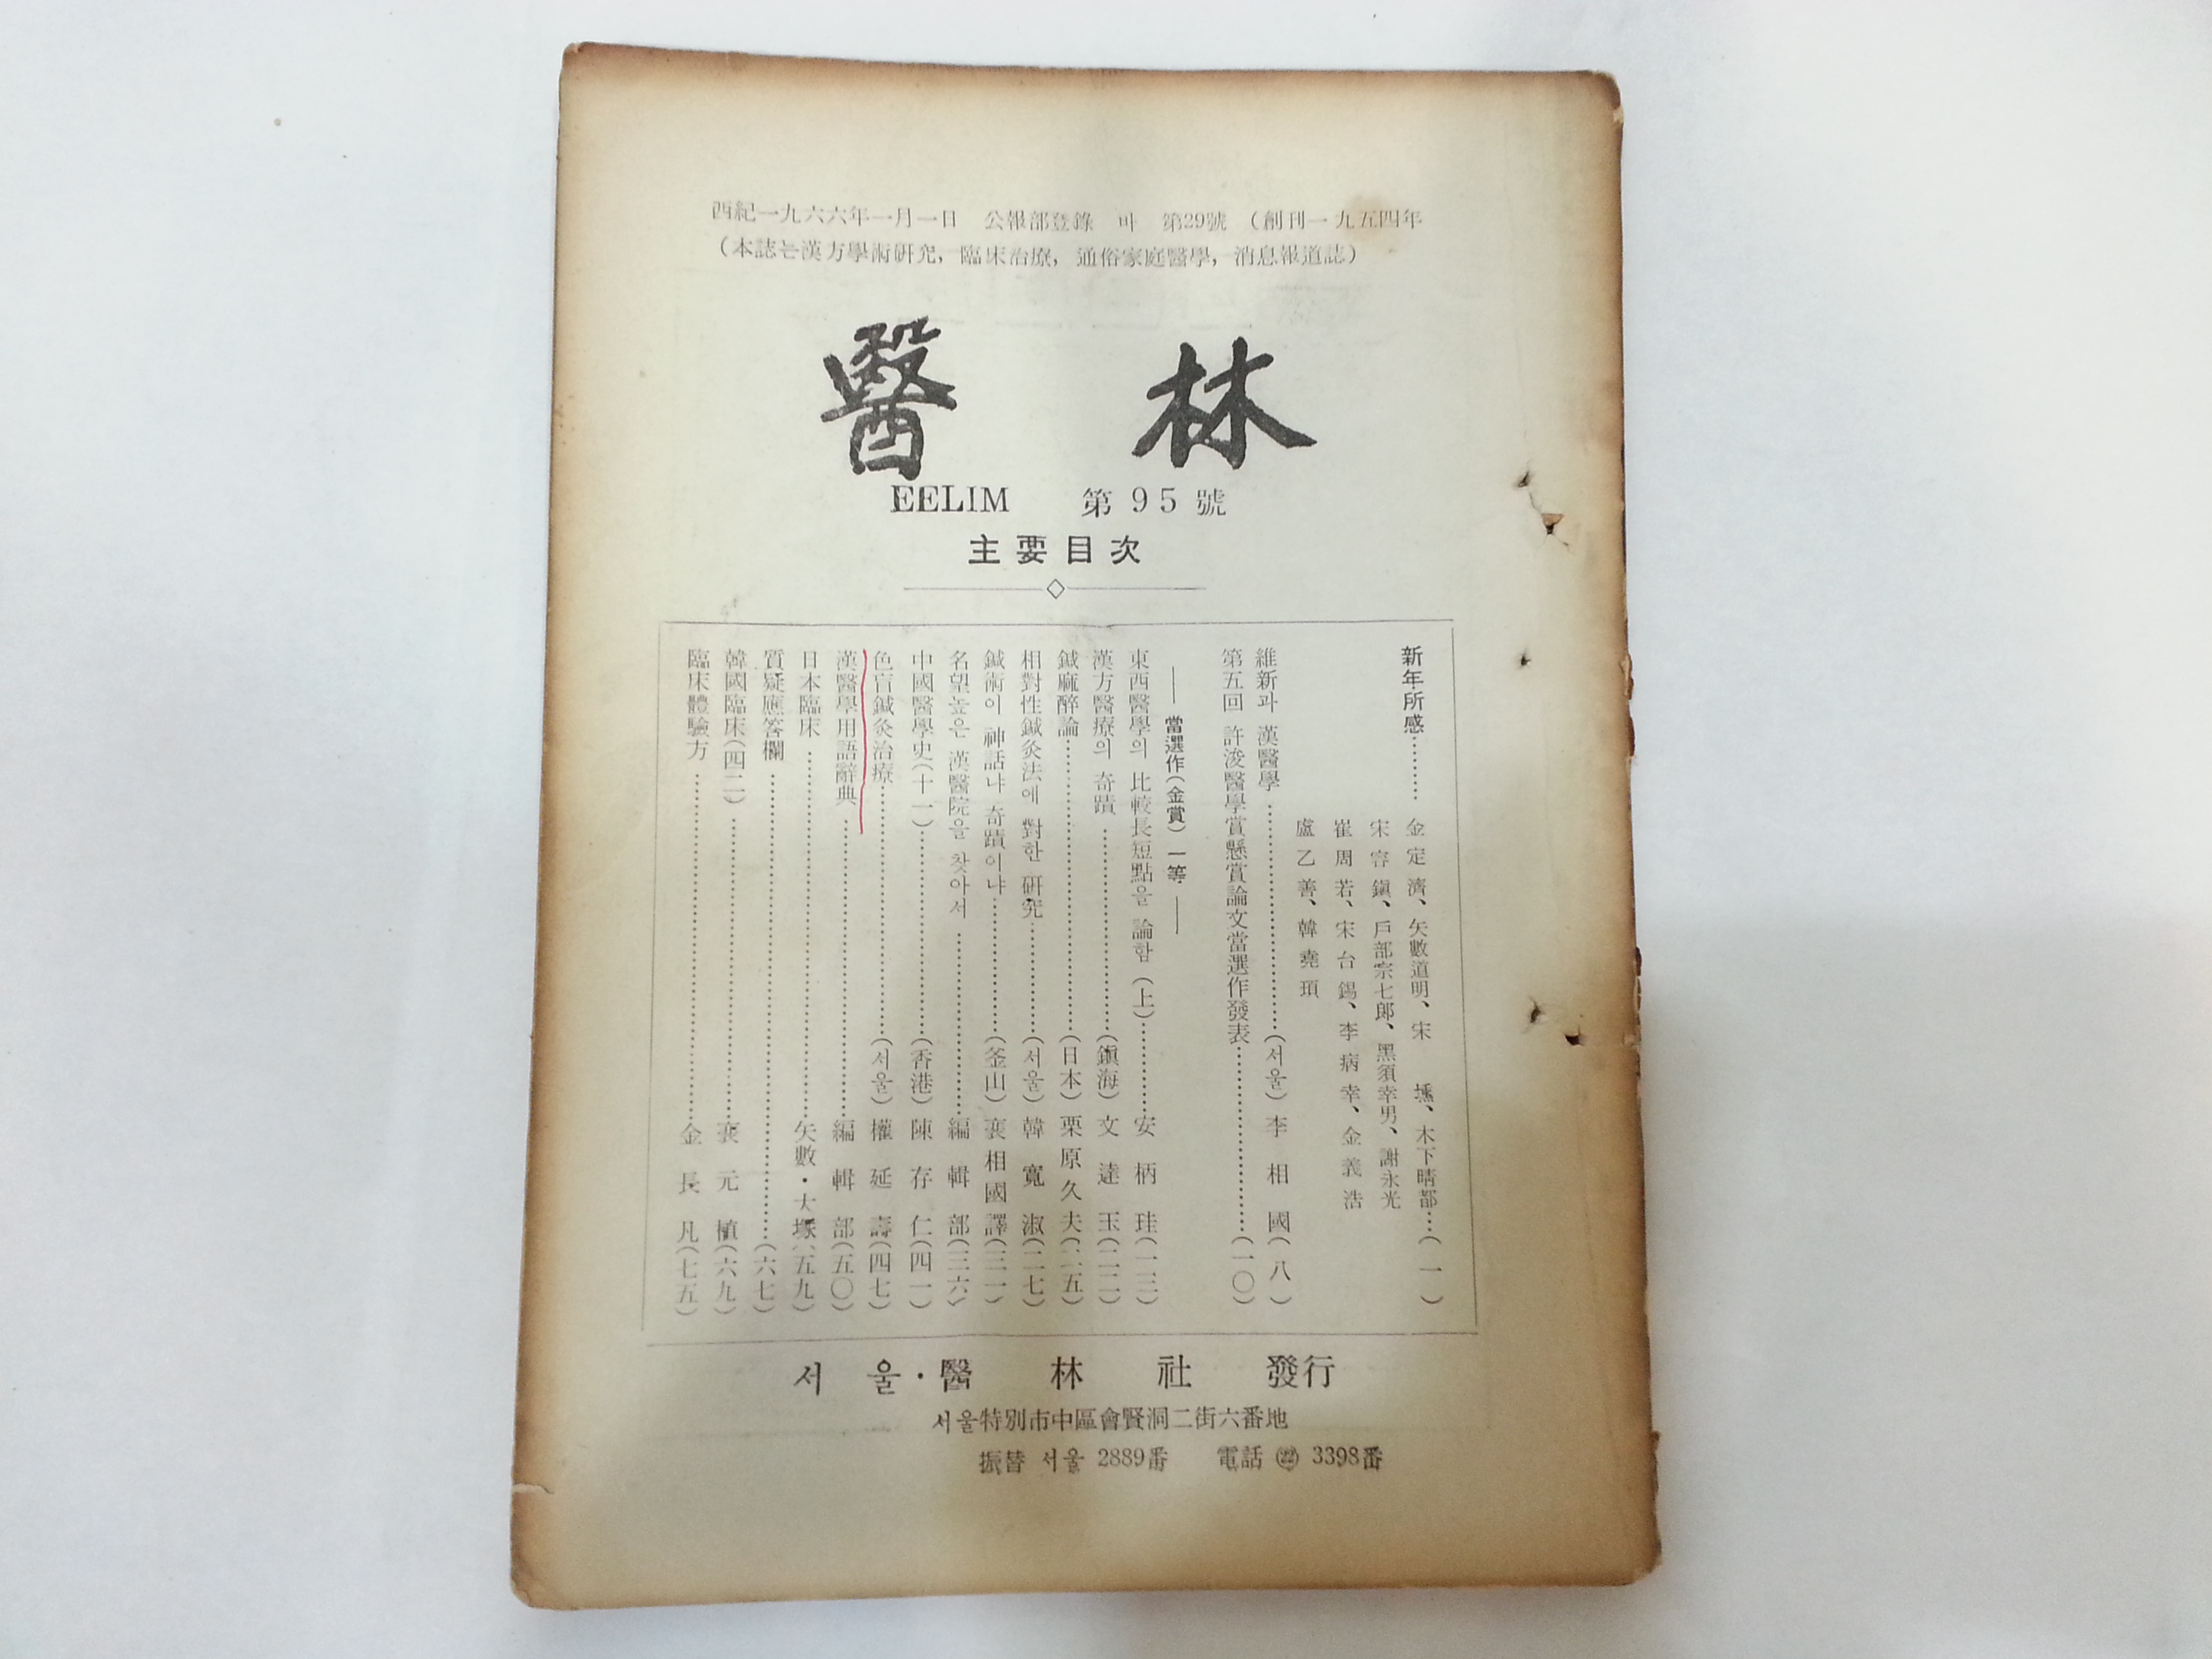 西紀一九六六年一月一日 公報部登錄 바 第29號 (創刊一九五四年
(本誌는漢方學術硏究, 臨床治療, 通俗家庭醫學, 消息報道誌)
醫林
EELIM 第95號
主要目次
新年所感………金定濟、矢數道明、宋 、木下晴都…(一)
宋容鎭、戶部宗七郎、黑須幸男、謝永光
崔周若、宋台錫、李病幸、金義浩
盧乙善、韓堯頊
維新과 漢醫學………(서울) 李相國(八)
第五回 許浚醫學賞懸賞論文當選作發表………(一〇)
—當選作(金賞)一等—
東西醫學의 比較長短點을 論함 (上)………安柄珪(一三)
漢方醫療의 奇蹟………(鎭海) 文達玉(二二)
鍼麻醉論………(日本) 栗原久夫(二五)
相對性鍼灸法에 對한 硏究………(서울) 韓寬淑(二七)
鍼術이 神話냐 奇蹟이냐………(釜山) 裵相國譯(三一)
名望높은 漢醫院을 찾아서………編輯部(三六)
中國醫學史(十一)………(香港) 陳存仁(四一)
色盲鍼灸治療………(서울) 權延壽(四七)
漢醫學用語辭典………編輯部(五〇)
日本臨床………矢數·大塚(五九)
質疑應答欄………(六七)
韓國臨床(四二)………裵元植(六九)
臨床體驗方………金長凡(七五)
서울·醫林社 發行
서울特別市中區會賢洞二街六番地
振替 서울 2889番 電話 ㉒ 3398番